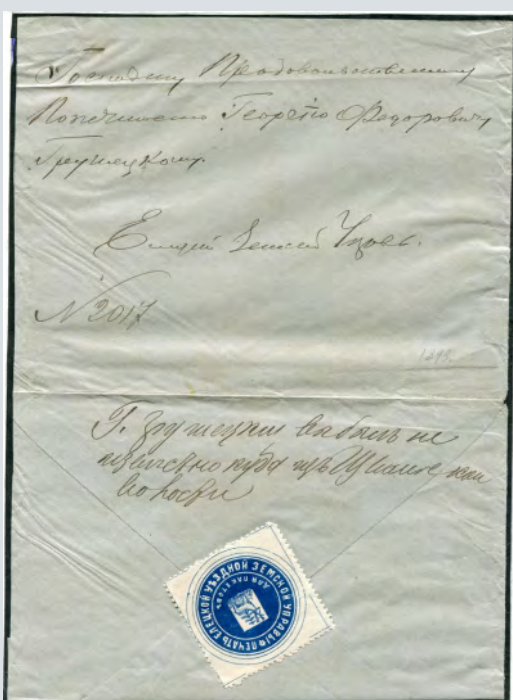 Господину Продовольственному
Попечителю Георгію Федоровичу
Грушецкому.
Елецкой Земской Управ.
N 2017
1893.
Г. Грушецкій выбылъ не
известно куда изъ
волости
ПЕЧАТЬ ЕЛЕЦКОЙ УѢЗДНОЙ ЗЕМСКОЙ УПРАВЫ
ДЛЯ ПАКЕТОВЪ